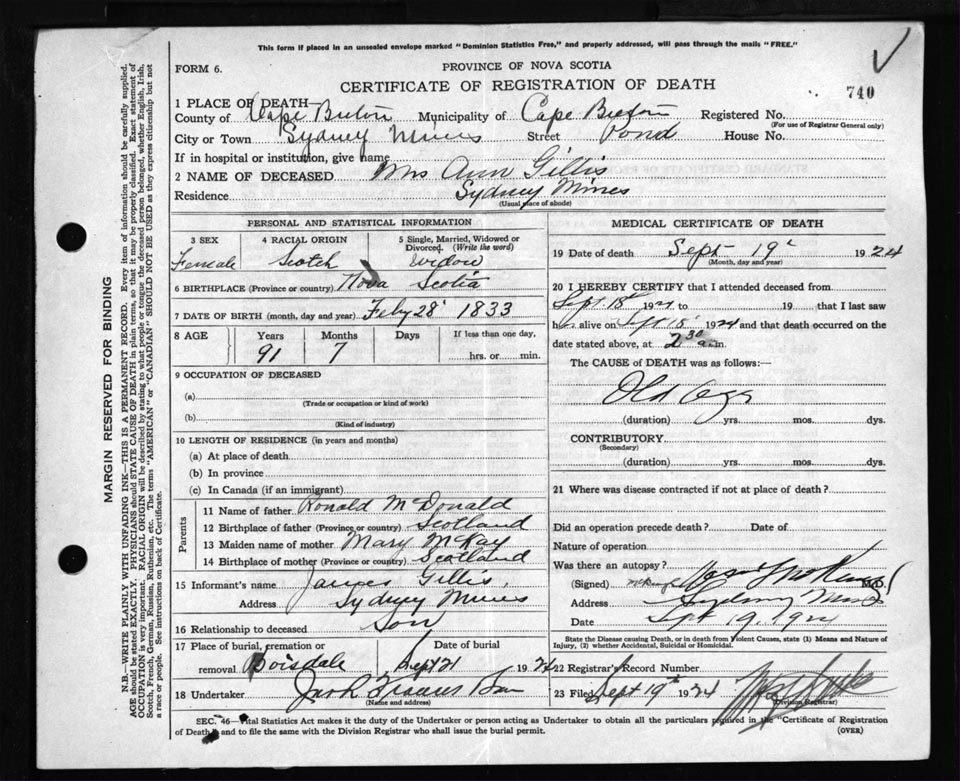 This form if placed in an unsealed envelope marked "Dominion Statistics Free," and properly addressed, will pass through the mails "FREE."
FORM 6.
PROVINCE OF NOVA SCOTIA
CERTIFICATE OF REGISTRATION OF DEATH
740
1 PLACE OF DEATH—
County of Cape Breton Municipality of Cape Breton Registered No.
(For use of Registrar General only)
City or Town Sydney Mines Street Pond House No.
If in hospital or institution, give name
2 NAME OF DECEASED Mrs Ann Gillis
Residence Sydney Mines
(Usual place of abode)
PERSONAL AND STATISTICAL INFORMATION
3 SEX 4 RACIAL ORIGIN 5 Single, Married, Widowed or Divorced. (Write the word)
Female Scotch Widow
6 BIRTHPLACE (Province or country) Nova Scotia
7 DATE OF BIRTH (month, day and year) Feby 28 1833
8 AGE Years Months Days If less than one day,
91 7 hrs. or min.
9 OCCUPATION OF DECEASED
(a)
(Trade or occupation or kind of work)
(b)
(Kind of industry)
10 LENGTH OF RESIDENCE (in years and months)
(a) At place of death
(b) In province
(c) In Canada (if an immigrant)
Parents
11 Name of father Ronald McDonald
12 Birthplace of father (Province or country) Scotland
13 Maiden name of mother Mary McKay
14 Birthplace of mother (Province or country) Scotland
15 Informant's name James Gillis,
Address Sydney Mines
16 Relationship to deceased Son
17 Place of burial, cremation or removal Date of burial
Boisdale Sept 21 1924
18 Undertaker
(Name and address)
MEDICAL CERTIFICATE OF DEATH
19 Date of death Sept 19 1924
(Month, day and year)
20 I HEREBY CERTIFY that I attended deceased from
Sept. 18 1924 to 19 that I last saw
h alive on Sept 18 1924 and that death occurred on the
date stated above, at 2 30 a.m.
The CAUSE of DEATH was as follows:—
Old age
(duration) yrs. mos. dys.
CONTRIBUTORY
(Secondary)
(duration) yrs. mos. dys.
21 Where was disease contracted if not at place of death?
Did an operation precede death? Date of
Nature of operation
Was there an autopsy?
(Signed) M.D.
Address Sydney Mines
Date Sept 19, 1924
State the Disease causing Death, or in death from Violent Causes, state (1) Means and Nature of Injury, (2) whether Accidental, Suicidal or Homicidal.
22 Registrar's Record Number
23 Filed Sept 19th 1924
(Division Registrar)
SEC. 46—Vital Statistics Act makes it the duty of the Undertaker or person acting as Undertaker to obtain all the particulars required in the Certificate of Registration
of Death and to file the same with the Division Registrar who shall issue the burial permit.
(OVER)
MARGIN RESERVED FOR BINDING
N.B.—WRITE PLAINLY WITH UNFADING INK—THIS IS A PERMANENT RECORD. Every item of information should be carefully supplied.
AGE should be stated EXACTLY. PHYSICIANS should STATE CAUSE OF DEATH in plain terms, so that it may be properly classified. Exact statement of
OCCUPATION is very important. RACIAL ORIGIN will be described by stating to what people or tongue the deceased person belonged, whether English, Irish,
Scotch, French, German, Russian, Ruthenian, etc. The terms "AMERICAN" or "CANADIAN" SHOULD NOT BE USED as they express citizenship but not
a race or people. See instructions on back of Certificate.